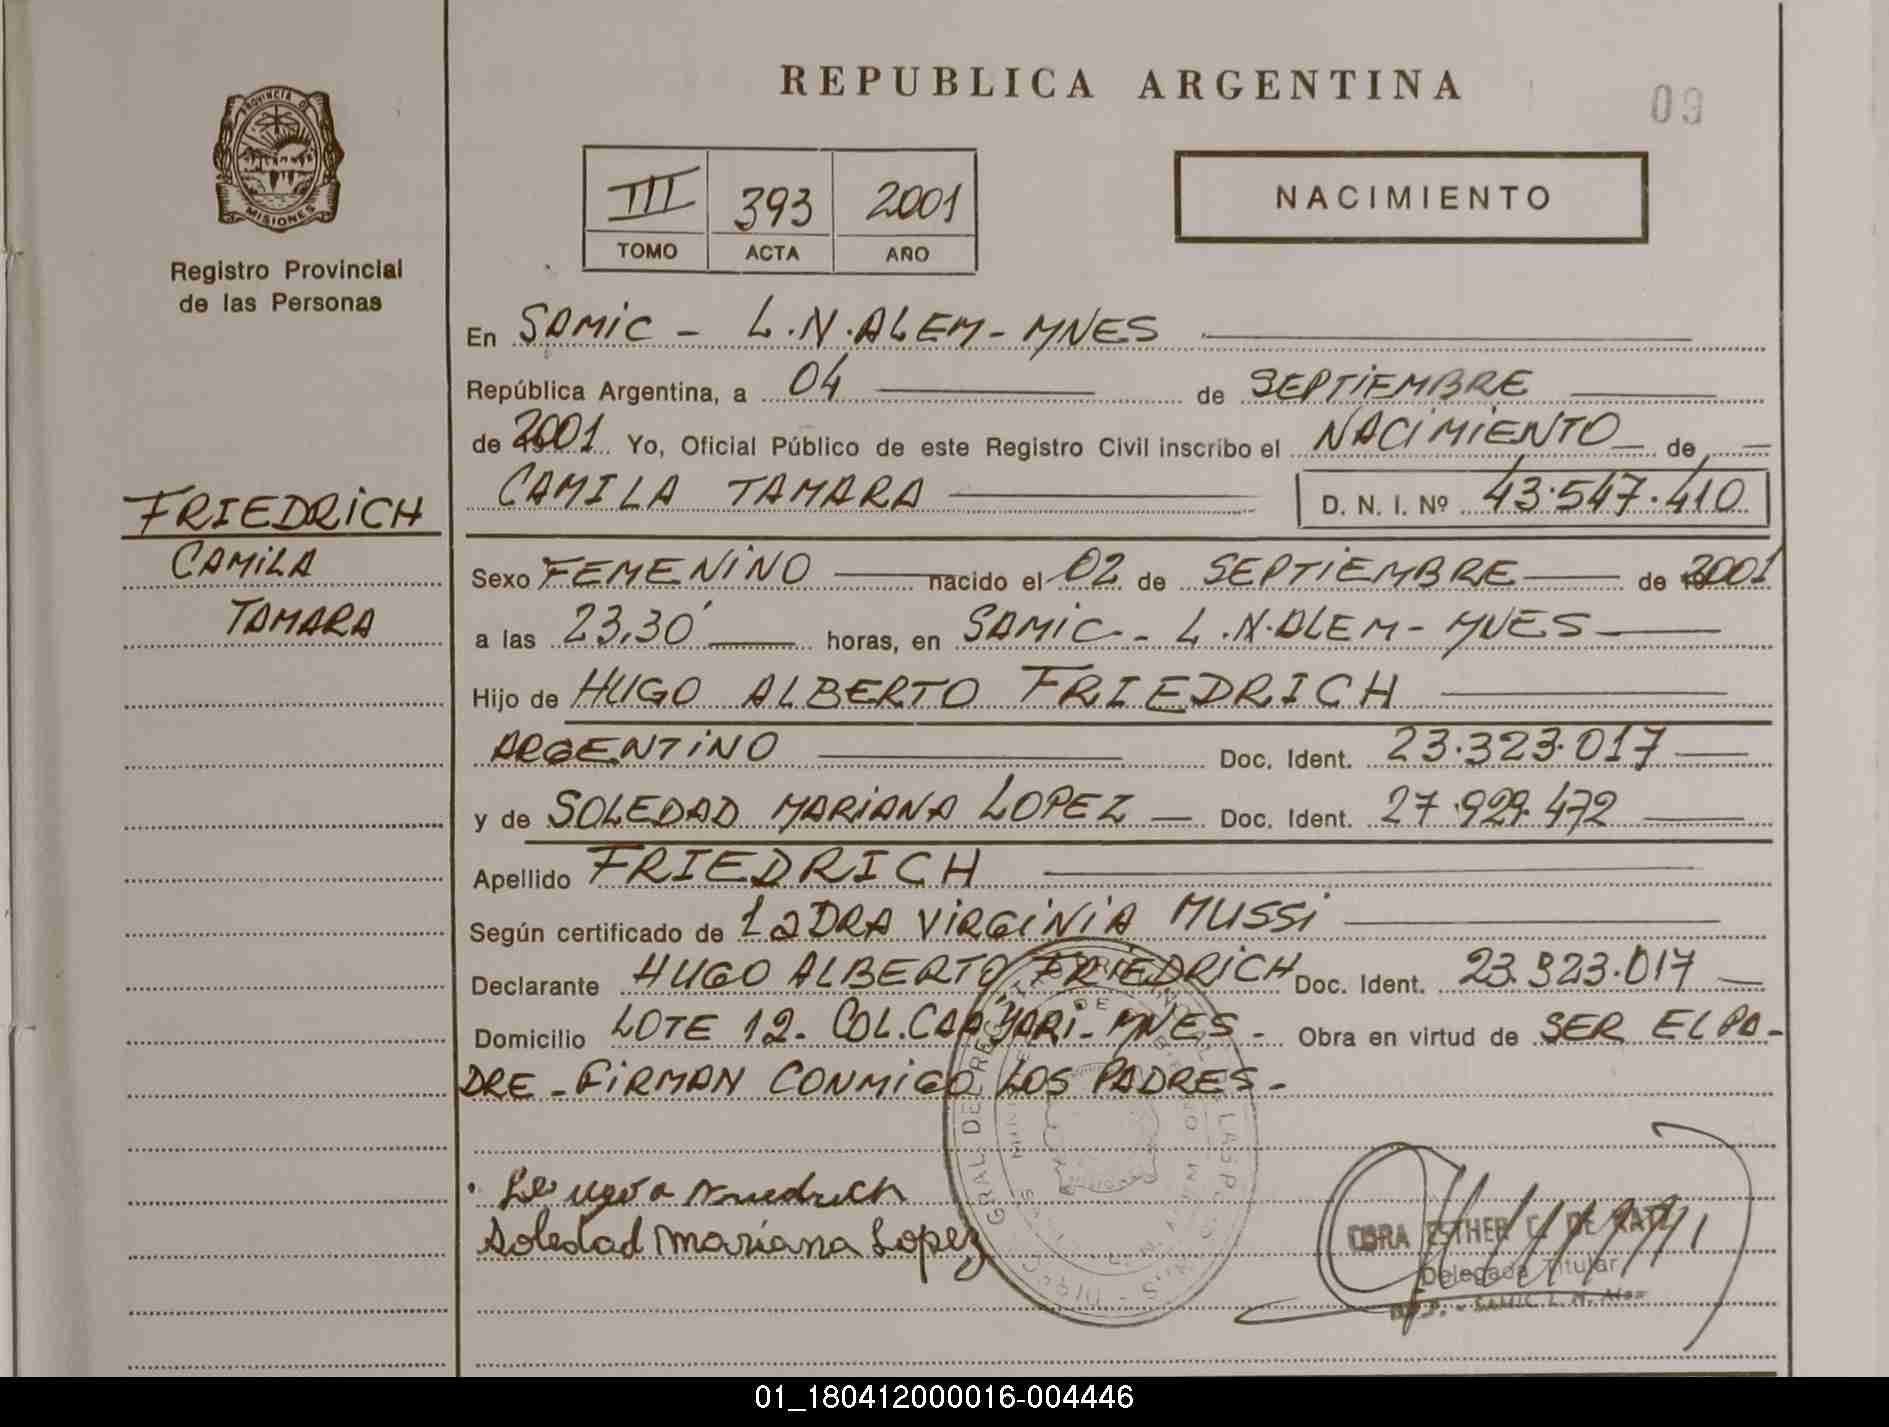 REPUBLICA ARGENTINA
09
PROVINCIA DE
MISIONES
Registro Provincial
de las Personas
III 393 2001
TOMO ACTA AÑO
NACIMIENTO
En SAMIC - L.N.ALEM - MNES
República Argentina, a 04 de SEPTIEMBRE
de 2001 Yo, Oficial Público de este Registro Civil inscribo el NACIMIENTO de
CAMILA TAMARA D. N. I. Nº 43.547.410
FRIEDRICH
CAMILA
TAMARA
Sexo FEMENINO nacido el 02 de SEPTIEMBRE de 2001
a las 23,30' horas, en SAMIC - L.N.ALEM - MNES
Hijo de HUGO ALBERTO FRIEDRICH
ARGENTINO Doc. Ident. 23.323.017
y de SOLEDAD MARIANA LOPEZ Doc. Ident. 27.929.472
Apellido FRIEDRICH
Según certificado de la DRA VIRGINIA MUSSI
Declarante HUGO ALBERTO FRIEDRICH Doc. Ident. 23.323.017
Domicilio LOTE 12. COL. CAA YARI - MNES - Obra en virtud de SER EL PA-
DRE - FIRMAN CONMIGO LOS PADRES -
Friedrich
Soledad Mariana Lopez
ESTHER C. DE
Delegada Titular
SAMIC L. N. Alem
01_180412000016-004446